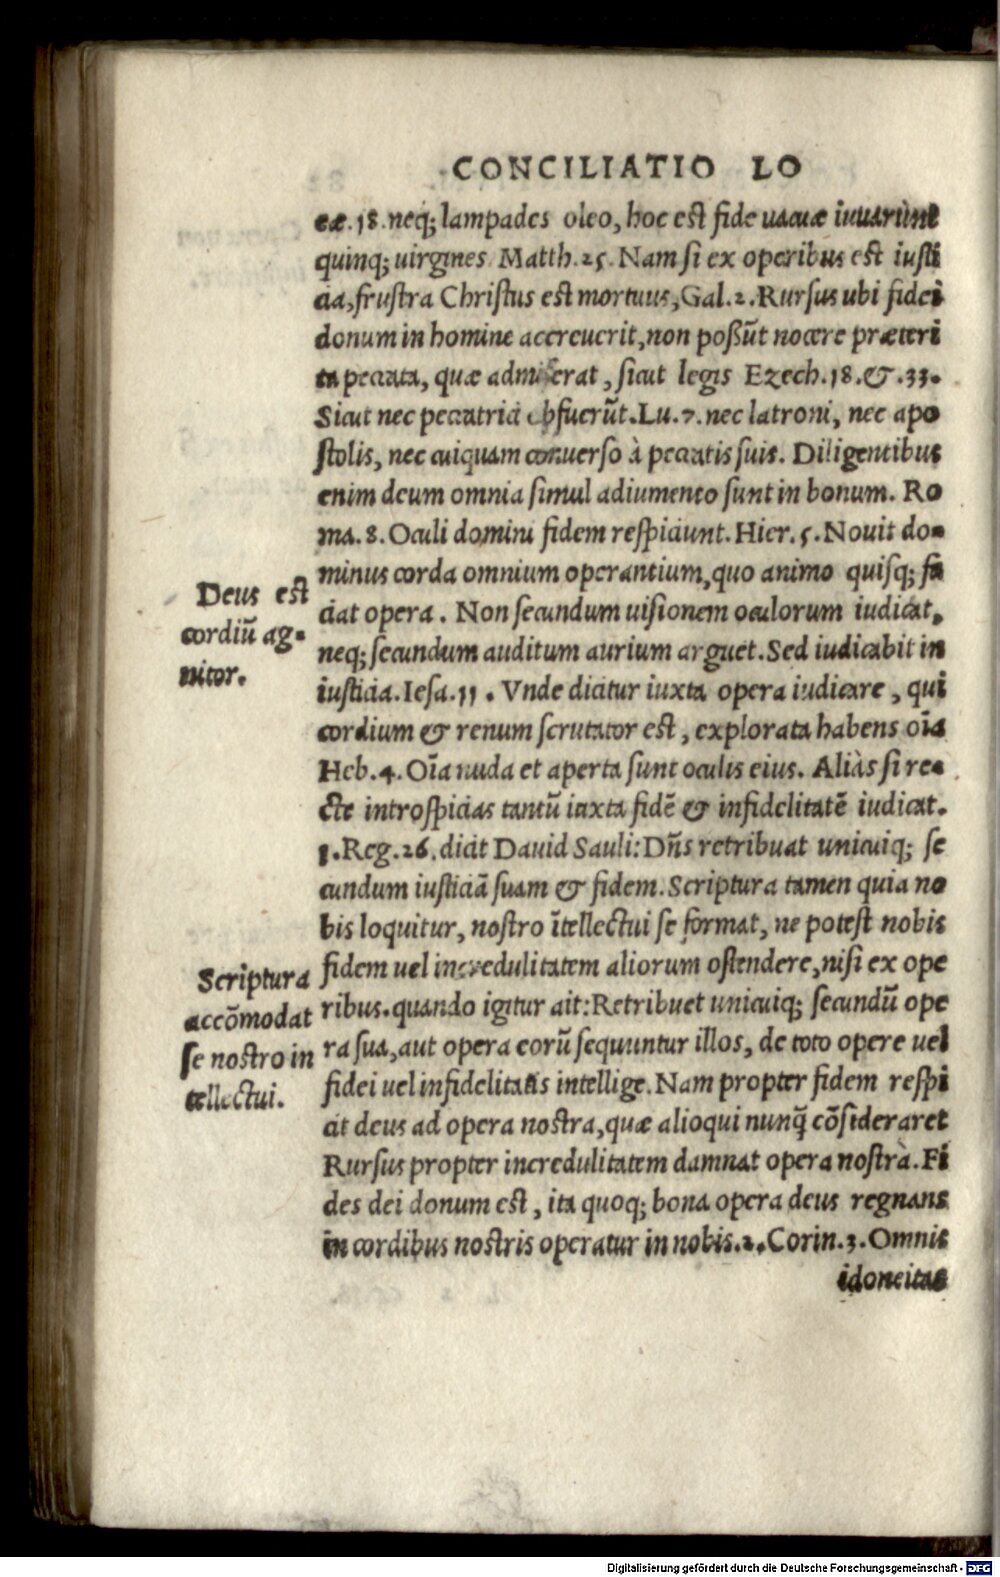 CONCILIATIO LO
eæ.18.neq; lampades oleo, hoc est fide uacuæ iuuarunt
quinq; uirgines Matth.25. Nam si ex operibus est iusti
cia, frustra Christus est mortuus, Gal.2. Rursus ubi fidei
donum in homine accreuerit, non possũt nocere præteri
ta peccata, quæ admiserat, sicut legis Ezech.18.&.33.
Sicut nec peccatrici obfuerũt. Lu.7. nec latroni, nec apo
stolis, nec cuiquam conuerso à peccatis suis. Diligentibus
enim deum omnia simul adiumento sunt in bonum. Ro
ma.8. Oculi domini fidem respiciunt. Hier.5. Nouit do-
minus corda omnium operantium, quo animo quisq; fa
ciat opera. Non secundum uisionem oculorum iudicat,
neq; secundum auditum aurium arguet. Sed iudicabit in
iusticia. Iesa.11. Vnde dicitur iuxta opera iudicare, qui
cordium & renum scrutator est, explorata habens oĩa
Heb.4. Oĩa nuda et aperta sunt oculis eius. Aliàs si re-
cte introspicias tantũ iuxta fidẽ & infidelitatẽ iudicat.
1.Reg.26. dicit Dauid Sauli: Dñs retribuat unicuiq; se
cundum iusticiã suam & fidem. Scriptura tamen quia no
bis loquitur, nostro ĩtellectui se format, ne potest nobis
fidem uel incredulitatem aliorum ostendere, nisi ex ope
ribus. quando igitur ait: Retribuet unicuiq; secundũ ope
ra sua, aut opera eorũ sequuntur illos, de toto opere uel
fidei uel infidelitatis intellige. Nam propter fidem respi
cit deus ad opera nostra, quæ alioqui nunq̃ cõsideraret
Rursus propter incredulitatem damnat opera nostra. Fi
des dei donum est, ita quoq; bona opera deus regnans
in cordibus nostris operatur in nobis. 2. Corin.3. Omnis
idoneitas
Deus est
cordiũ ag-
nitor.
Scriptura
accõmodat
se nostro in
tellectui.
Digitalisierung gefördert durch die Deutsche Forschungsgemeinschaft - DFG